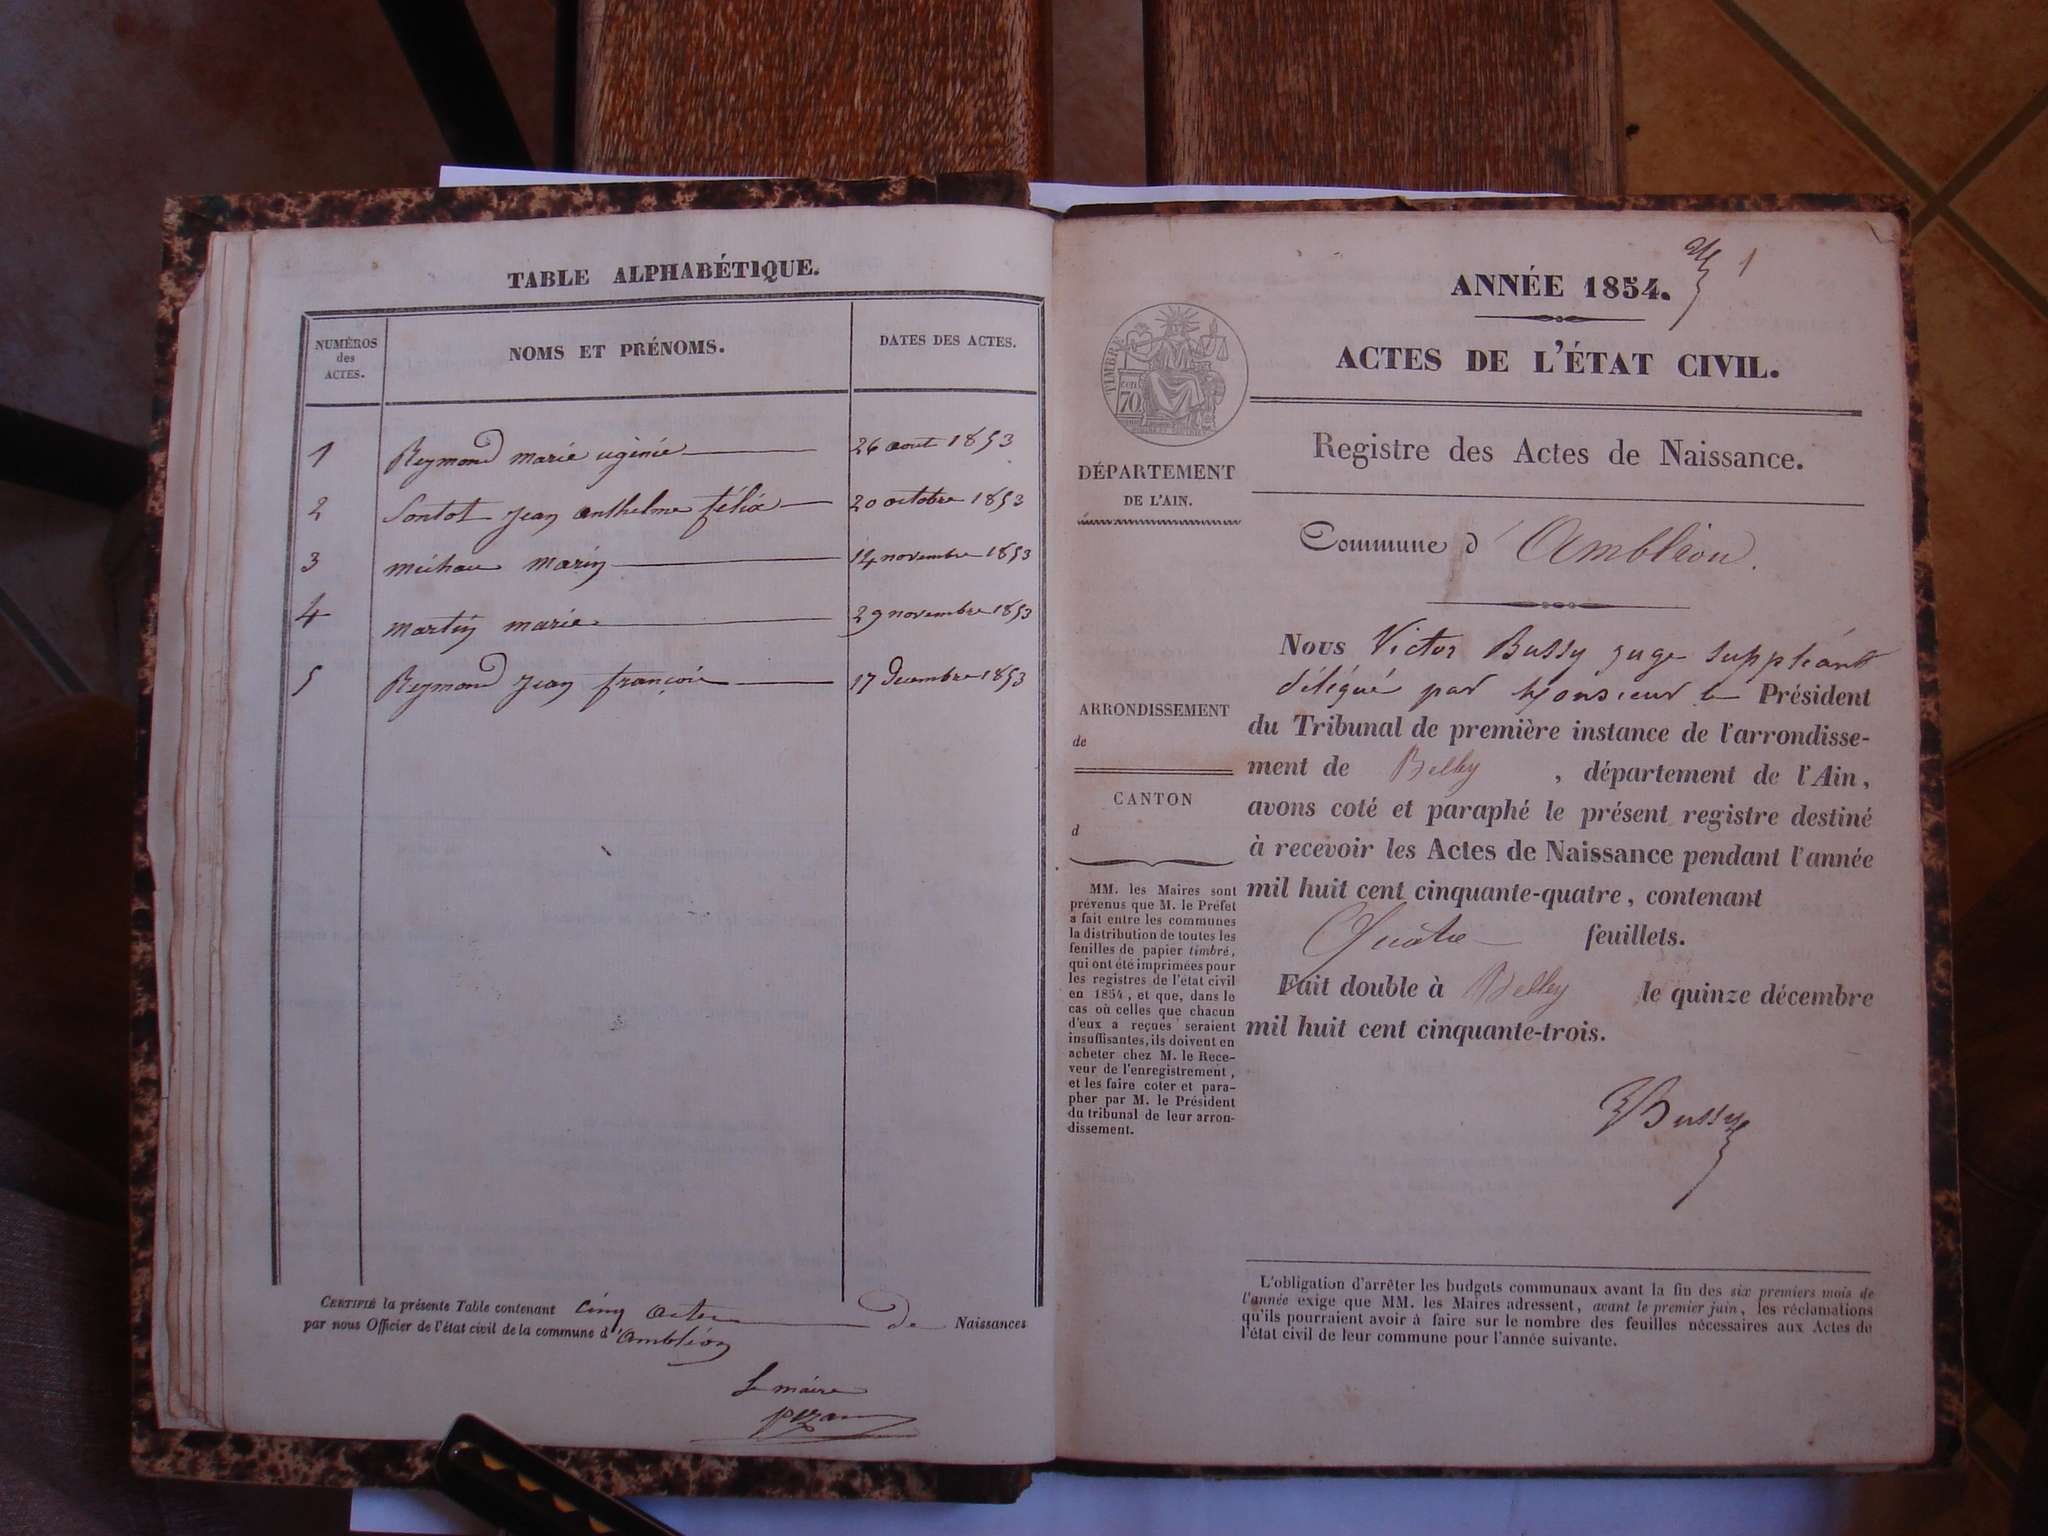 TABLE ALPHABÉTIQUE.
NUMÉROS
des
ACTES.
NOMS ET PRÉNOMS.
DATES DES ACTES.
1 Reymond marie ugénie 26 aout 1853
2 Sontot jean anthelme félix 20 octobre 1853
3 michau marin 14 novembre 1853
4 martin marie 29 novembre 1853
5 Reymond jean françois 17 decembre 1853
CERTIFIÉ la présente Table contenant cinq actes de Naissances
par nous Officier de l'état civil de la commune d'Ambléon
Le maire
ANNÉE 1854.
1
ACTES DE L'ÉTAT CIVIL.
TIMBRE
cen
70
Registre des Actes de Naissance.
DÉPARTEMENT
DE L'AIN.
Commune d'Ambléon.
ARRONDISSEMENT
de
CANTON
d
MM. les Maires sont
prévenus que M. le Préfet
a fait entre les communes
la distribution de toutes les
feuilles de papier timbré,
qui ont été imprimées pour
les registres de l'état civil
en 1854, et que, dans le
cas où celles que chacun
d'eux a reçues seraient
insuffisantes, ils doivent en
acheter chez M. le Rece-
veur de l'enregistrement,
et les faire coter et para-
pher par M. le Président
du tribunal de leur arron-
dissement.
Nous Victor Bussy juge suppléant
délégué par Monsieur le Président
du Tribunal de première instance de l'arrondisse-
ment de Belley, département de l'Ain,
avons coté et paraphé le présent registre destiné
à recevoir les Actes de Naissance pendant l'année
mil huit cent cinquante-quatre, contenant
Quatre feuillets.
Fait double à Belley le quinze décembre
mil huit cent cinquante-trois.
VBussy
L'obligation d'arrêter les budgets communaux avant la fin des six premiers mois de
l'année exige que MM. les Maires adressent, avant le premier juin, les réclamations
qu'ils pourraient avoir à faire sur le nombre des feuilles nécessaires aux Actes de
l'état civil de leur commune pour l'année suivante.